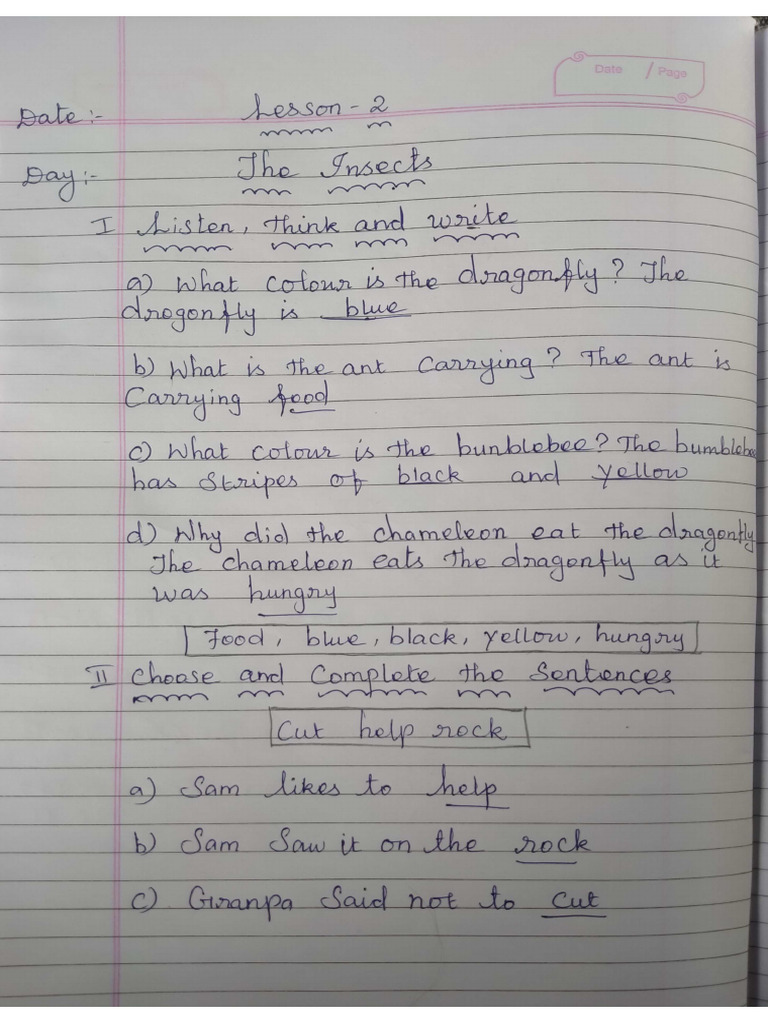 Date / Page
Date:- Lesson - 2
Day:- The Insects
I Listen, think and write
a) What colour is the dragonfly? The
drogonfly is blue
b) What is the ant carrying? The ant is
Carrying food
c) What colour is the bunblebee? The bumblebee
has stripes of black and yellow
d) Why did the chameleon eat the dragonfly
The chameleon eats the dragonfly as it
was hungry
Food, blue, black, yellow, hungry
II Choose and Complete the Sentences
Cut help rock
a) Sam likes to help
b) Sam Saw it on the rock
c) Granpa Said not to cut